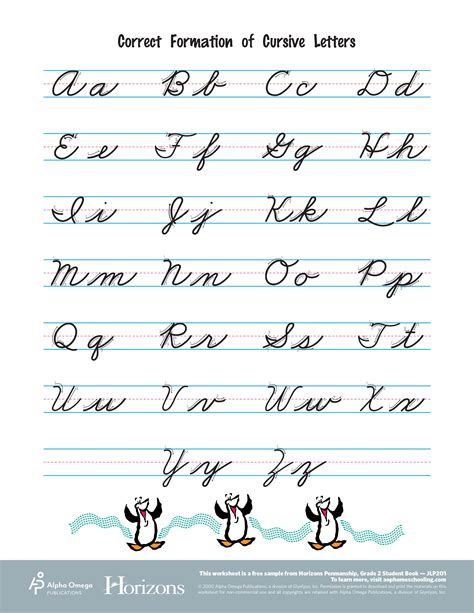 Correct Formation of Cursive Letters
Aa Bb Cc Dd
Ee Ff Gg Hh
Ii Jj Kk Ll
Mm Nn Oo Pp
Qq Rr Ss Tt
Uu Vv Ww Xx
Yy Zz
Alpha Omega
PUBLICATIONS
Horizons
This worksheet is a free sample from Horizons Penmanship, Grade 2 Student Book — JLP201
To learn more, visit aophomeschooling.com
© 2000 Alpha Omega Publications, a division of Glynlyon, Inc. Permission is granted to download and print the materials on this
worksheet for non-commercial use and all copyrights are retained by Alpha Omega Publications, a division of Glynlyon, Inc.